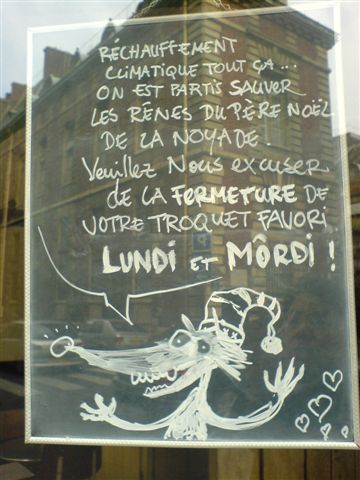 RÉCHAUFFEMENT
CLIMATIQUE TOUT ÇA...
ON EST PARTIS SAUVER
LES RÊNES DU PÈRE NOËL
DE LA NOYADE.
Veuillez Nous excuser
DE LA FERMETURE DE
VOTRE TROQUET FAVORI
LUNDI ET MÔRDI !